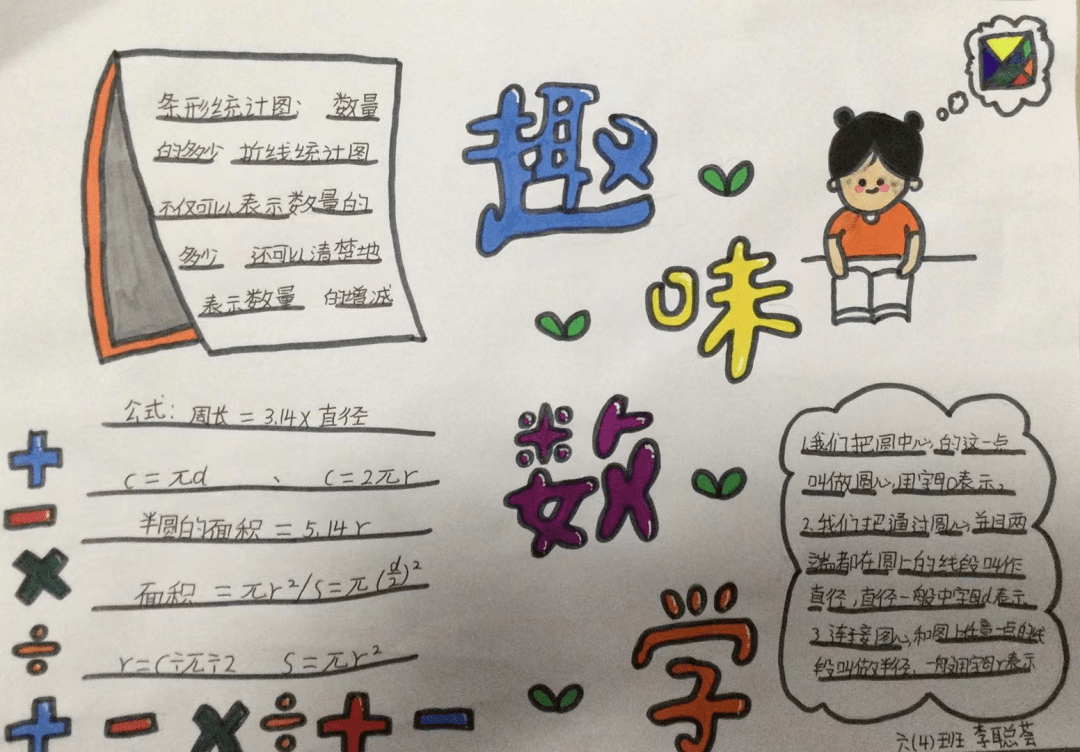 条形统计图: 数量
的多少 折线统计图
不仅可以表示数量的
多少 还可以清楚地
表示数量 的增减
趣
味
数
学
公式: 周长 = 3.14×直径
C=πd 、 C=2πr
半圆的面积 = 5.14r
面积 = πr²/S=π(d/2)²
r=C÷π÷2 S=πr²
1.我们把圆中心,的这一点
叫做圆心,用字母O表示。
2.我们把通过圆心,并且两
端都在圆上的线段叫作
直径,直径一般中字母d表示
3.连接圆心和圆上任意一点的线
段叫做半径,一般用字母r表示
六(4)班 李聪荟